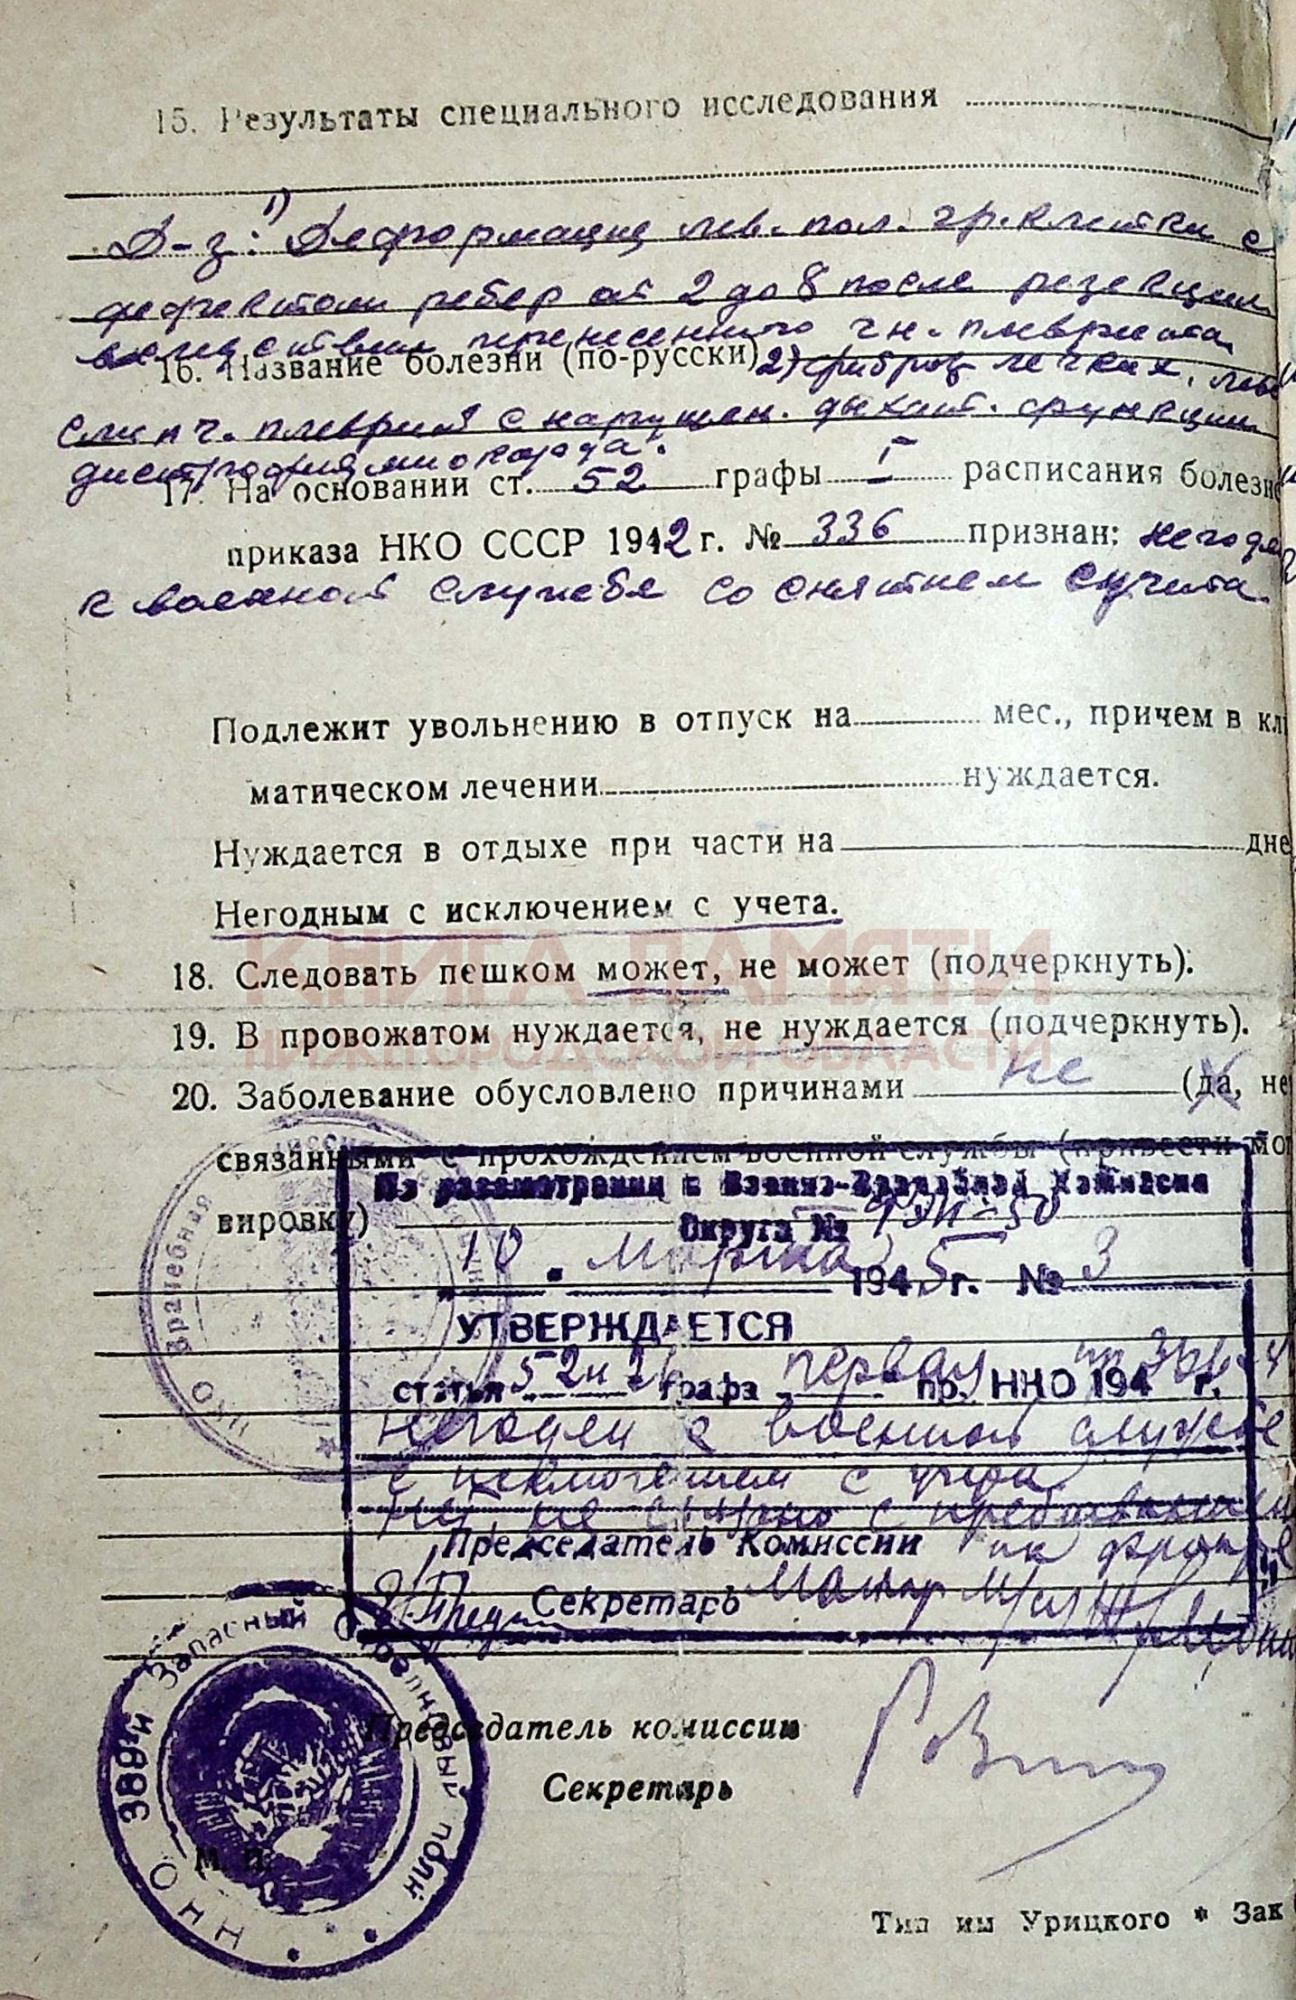 15. Результаты специального исследования
Д-з: 1) Деформация лев. пол. гр. клетки с
дефектом ребер от 2 до 8 после резекции
вследствии перенесенного гн. плеврита.
16. Название болезни (по-русски) 2) фиброз легких, лев
слипч. плеврит с нарушен. дыхат. функции
дистрофия миокарда.
17. На основании ст. 52 графы I расписания болезн
приказа НКО СССР 1942 г. № 336 признан: негоден
к военной службе со снятием с учета.
Подлежит увольнению в отпуск на мес., причем в кли
матическом лечении нуждается.
Нуждается в отдыхе при части на дне
Негодным с исключением с учета.
КНИГА ПАМЯТИ
18. Следовать пешком может, не может (подчеркнуть).
19. В провожатом нуждается, не нуждается (подчеркнуть).
НИЖЕГОРОДСКОЙ ОБЛАСТИ
20. Заболевание обусловлено причинами не (да, не
связанными с прохождением военной службы (привести мот
вировку)
По рассмотрении в Военно-Врачебной Комиссии
Округа №
10 . марта 1945 г. № 3
УТВЕРЖДАЕТСЯ
статья 52 и графа первая пр. НКО 194 г. 336
Негоден к военной службе
с исключением с учета
не связано с пребыванием
Председатель Комиссии на фронте
Секретарь Майор М/сл
Врачебная
НКО
Председатель комиссии
Секретарь
НКО 389й Запасный Стрелковый полк
М. П.
Тип им Урицкого * Зак